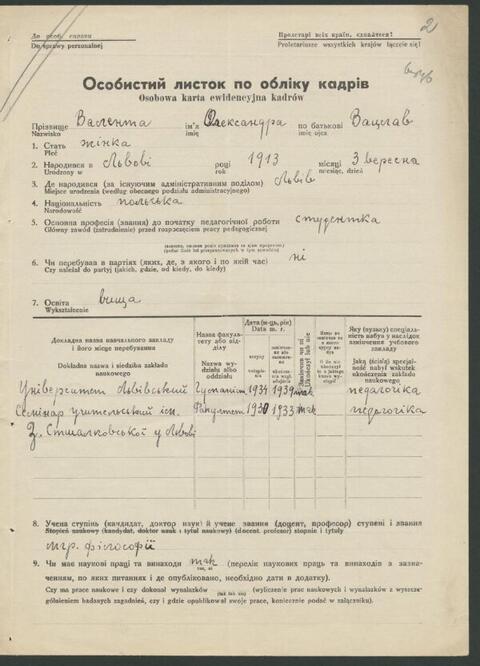 До особ. справи
Do sprawy personalnej
Пролетарі всіх країн, єднайтеся!
Proletariusze wszystkich krajów łączcie się!
2
Особистий листок по обліку кадрів
Osobowa karta ewidencyjna kadrów
Прізвище Валента ім'я Олександра по батькові Вацлав
Nazwisko imię imię ojca
1. Стать жінка
Płeć
2. Народився в Львові році 1913 місяці 3 вересна
Urodzony w rok miesiąc, dzień
3. Де народився (за існуючим адміністративним поділом) Львів
Miejsce urodzenia (według obecnego podziału administracyjnego)
4. Національність польська
Narodowość
5. Основна професія (звання) до початку педагогічної роботи студентка
Główny zawód (zatrudnienie) przed rozpoczęciem pracy pedagogicznej
6. Чи перебував в партіях (яких, де, з якого і по якій час) ні
Czy należał do partyj (jakich, gdzie, od kiedy, do kiedy)
7. Освіта вища
Wykształcenie
Докладна назва навчального закладу і його місце перебування
Dokładna nazwa i siedziba zakładu naukowego
Назва факультету або відділу
Nazwa wydziału albo oddziału
Дата (м-ць, рік)
Data m. r.
Яку (вузьку) спеціальність набув у наслідок закінчення учбового закладу
Jaką (ścisłą) specjalność nabył wskutek ukończenia zakładu naukowego
Університет Львівський Гуманіт. 1934 1939 так педагогіка
Семінар учительський ім. Факультет 1930 1933 так педагогіка
З. Стшалковської у Львові
8. Учена ступінь (кандидат, доктор наук) й учене звання (доцент, професор) ступені і звання
Stopień naukowy (kandydat, doktor nauk i tytuł naukowy) (docent, profesor) stopnie i tytuły
мгр. філософії
9. Чи має наукові праці та винаходи так (перелік наукових праць та винаходів з зазначенням, по яких питаннях і де опубліковано, необхідно дати в додатку).
Czy ma prace naukowe i czy dokonał wynalazków (tak lub nie) (wyliczenie prac naukowych i wynalazków z wyszczególnieniem badanych zagadnień, czy i gdzie opublikował swoje prace, koniecznie podać w załączniku).